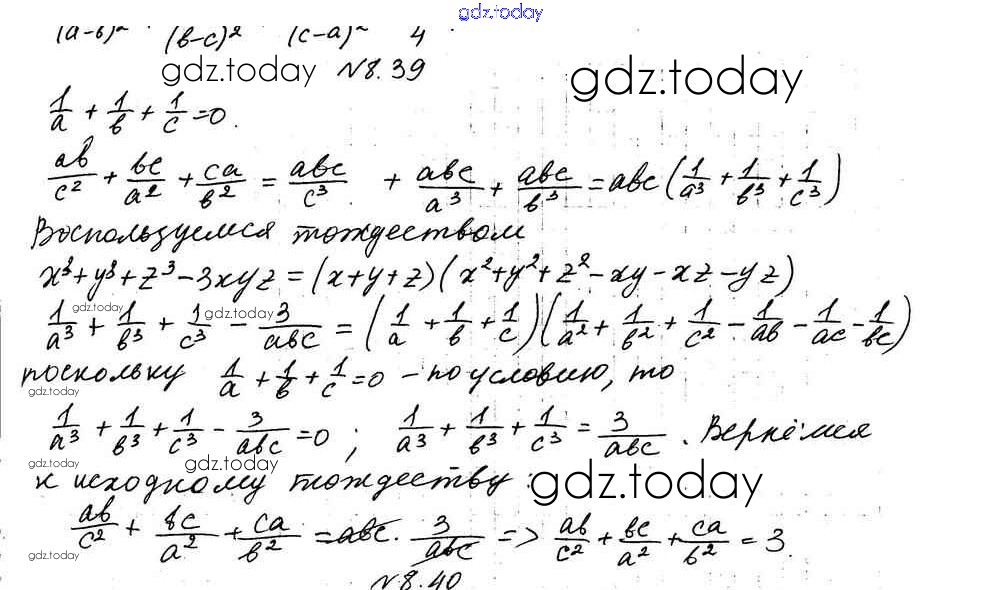 gdz.today
(a-b)² (b-c)² (c-a)² 4
gdz.today №8.39 gdz.today
1/a + 1/b + 1/c = 0.
ab/c² + bc/a² + ca/b² = abc/c³ + abc/a³ + abc/b³ = abc(1/a³ + 1/b³ + 1/c³)
Воспользуемся тождеством
x³+y³+z³-3xyz=(x+y+z)(x²+y²+z²-xy-xz-yz)
gdz.today gdz.today
1/a³ + 1/b³ + 1/c³ - 3/abc = (1/a + 1/b + 1/c)(1/a² + 1/b² + 1/c² - 1/ab - 1/ac - 1/bc)
поскольку 1/a + 1/b + 1/c = 0 - по условию, то
gdz.today
1/a³ + 1/b³ + 1/c³ - 3/abc = 0; 1/a³ + 1/b³ + 1/c³ = 3/abc. Вернёмся
gdz.today gdz.today
к исходному тождеству: gdz.today
ab/c² + bc/a² + ca/b² = abc · 3/abc => ab/c² + bc/a² + ca/b² = 3.
gdz.today
№8.40